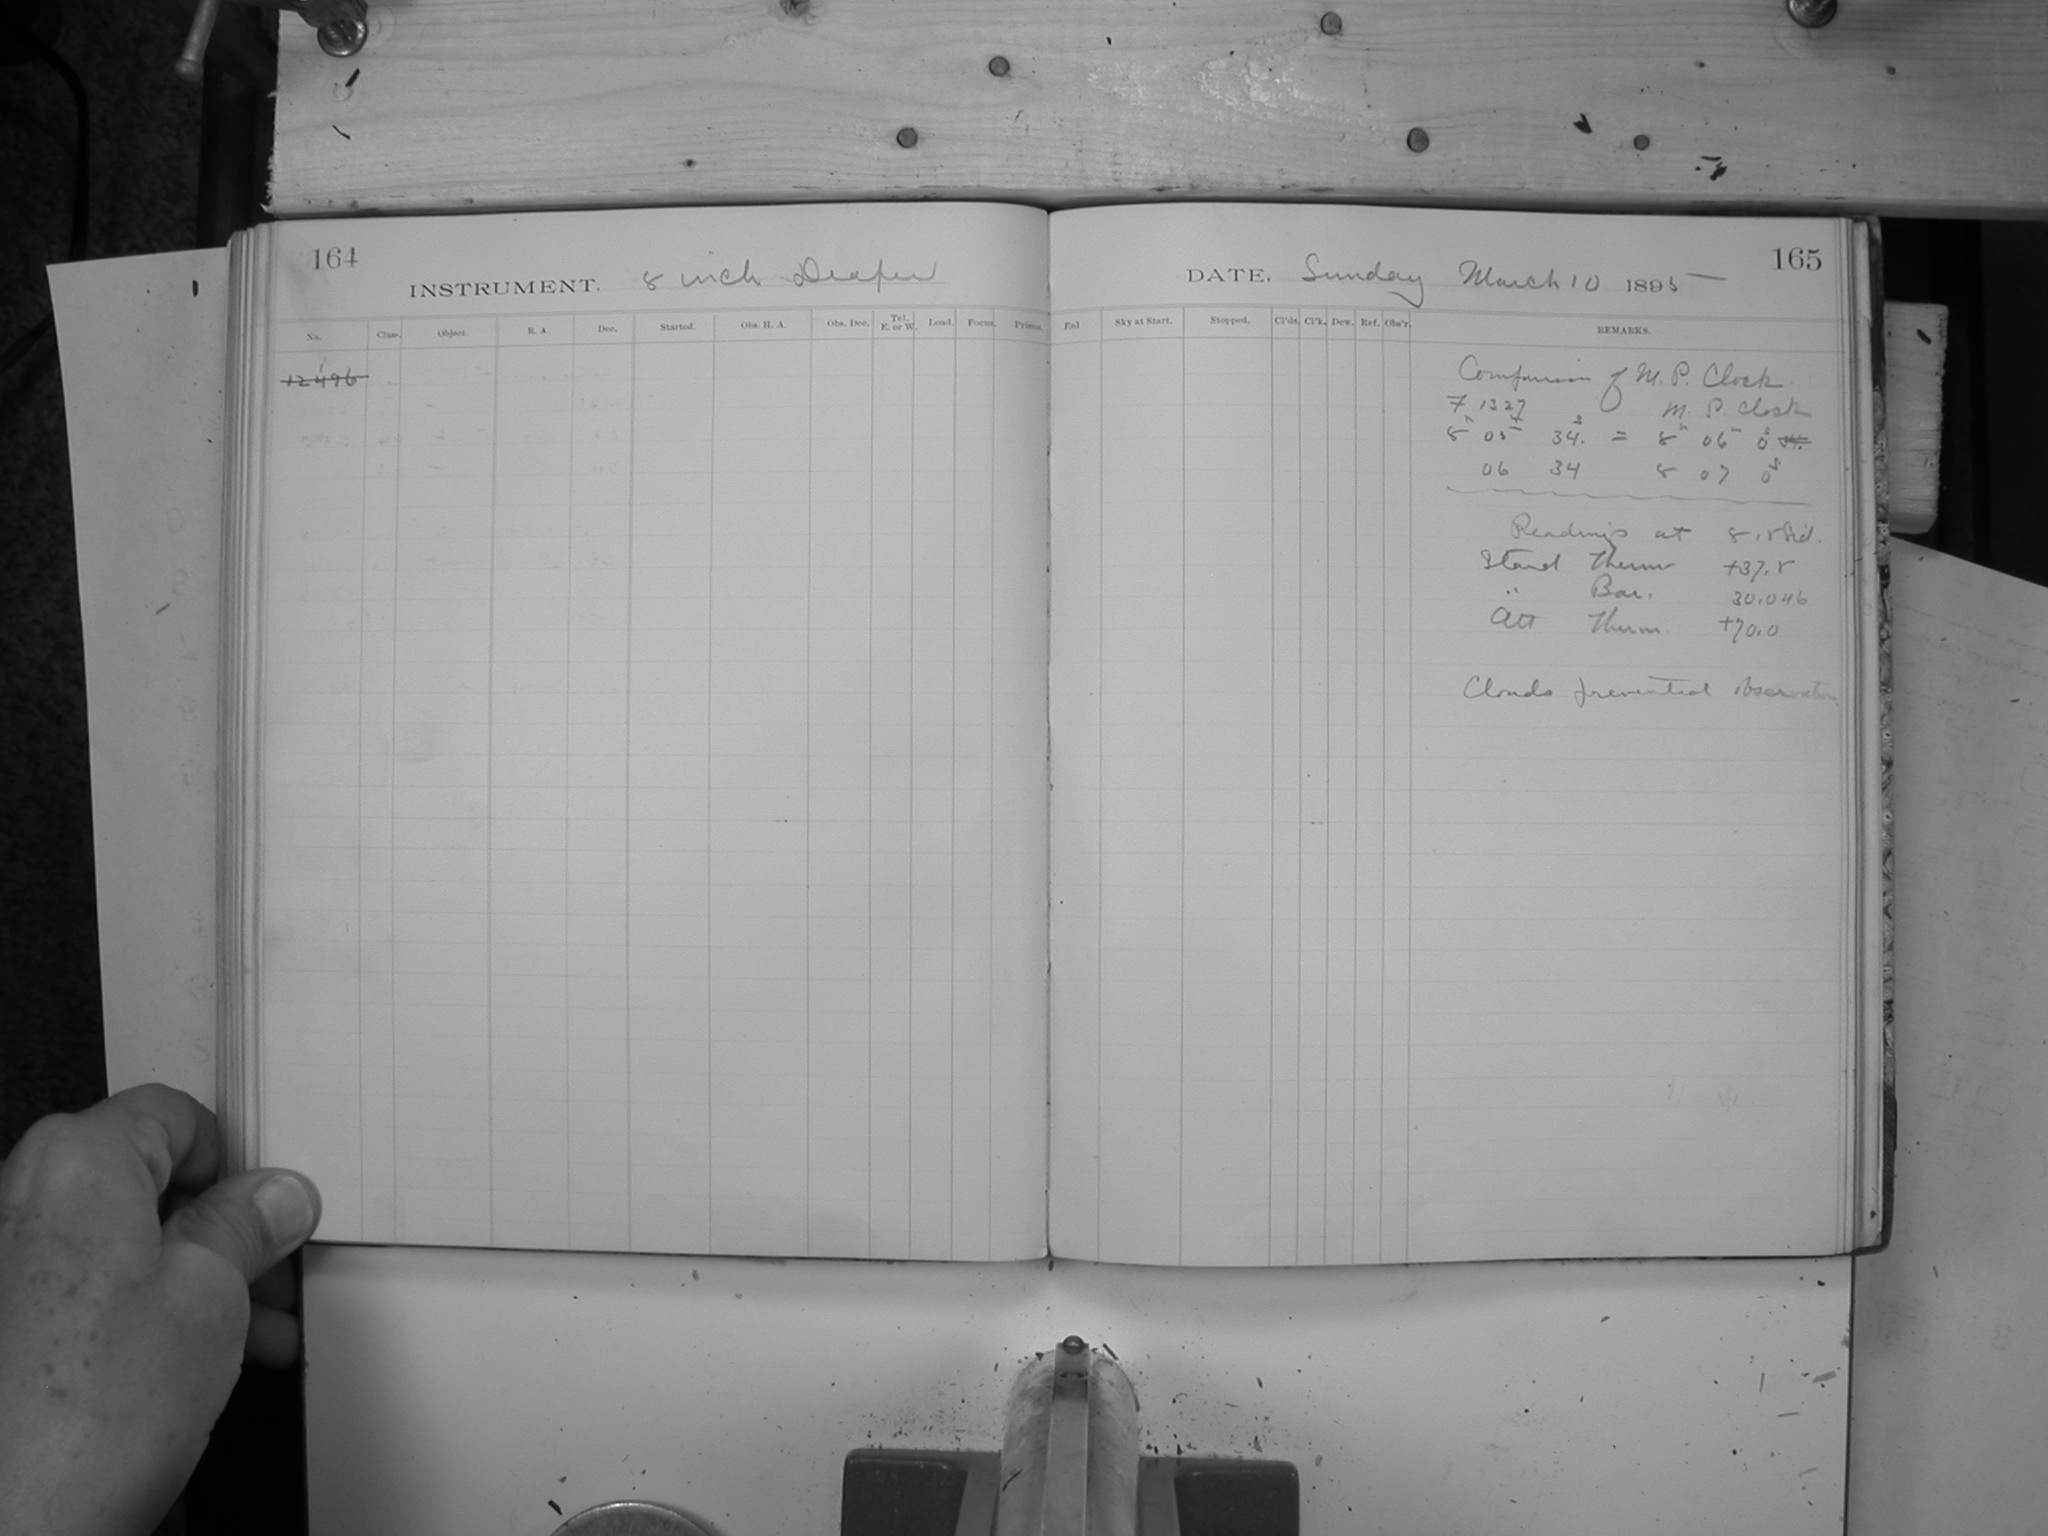 164
INSTRUMENT. 8 inch Draper
No. Class. Object. R. A. Dec. Started. Obs. H. A. Obs. Dec. Tel. E. or W. Load. Focus. Prisms.
12496
165
DATE. Sunday March 10 1895
Enl Sky at Start. Stopped. Cl'ds. Cl'k. Dew. Ref. Obs'r. REMARKS.
Comparison of M. P. Clock
7 1327 M. P. Clock
8h 05m 34s. = 8h 06m 0s
06 34 8 07 0
Readings at
Stand Therm +37.8
" Bar. 30.046
Att Therm. +70.0
Clouds prevented observation